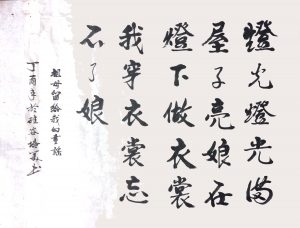 燈光燈光滿
屋子亮娘在
燈下做衣裳
我穿衣裳忘
不了娘
祖母 給我的童謠
丁酉年於硅谷